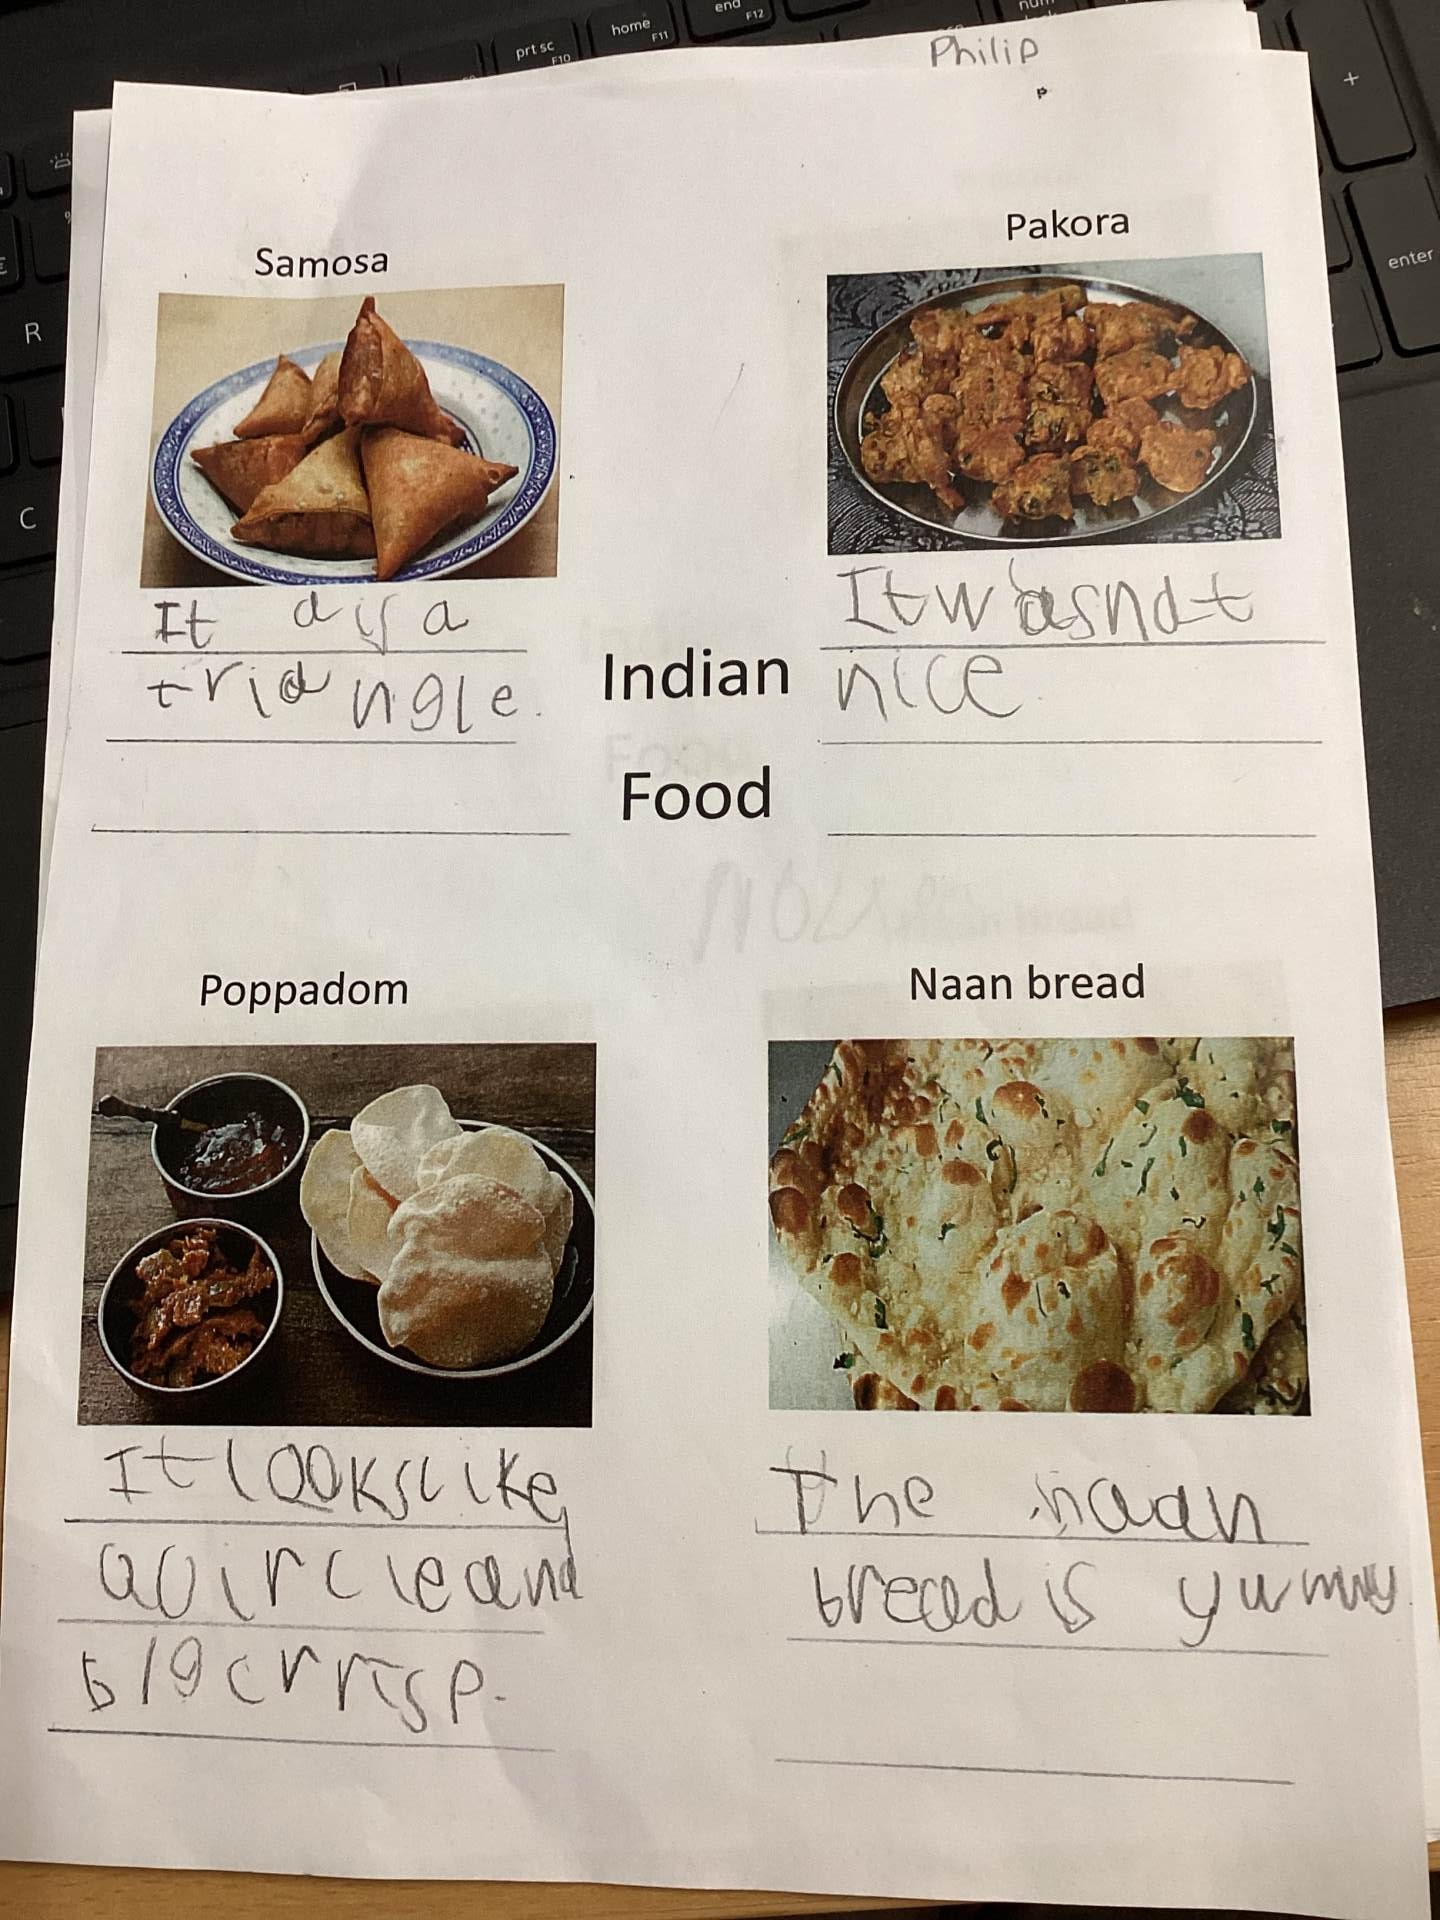 prt sc
F10
home
F11
end
F12
enter
R
C
+
Philip
P
Samosa
Pakora
It a is a
triangle.
It wasnat
nice
Indian
Food
Poppadom
Naan bread
It looks like
a circle and
big crrisp.
The naan
bread is yummy